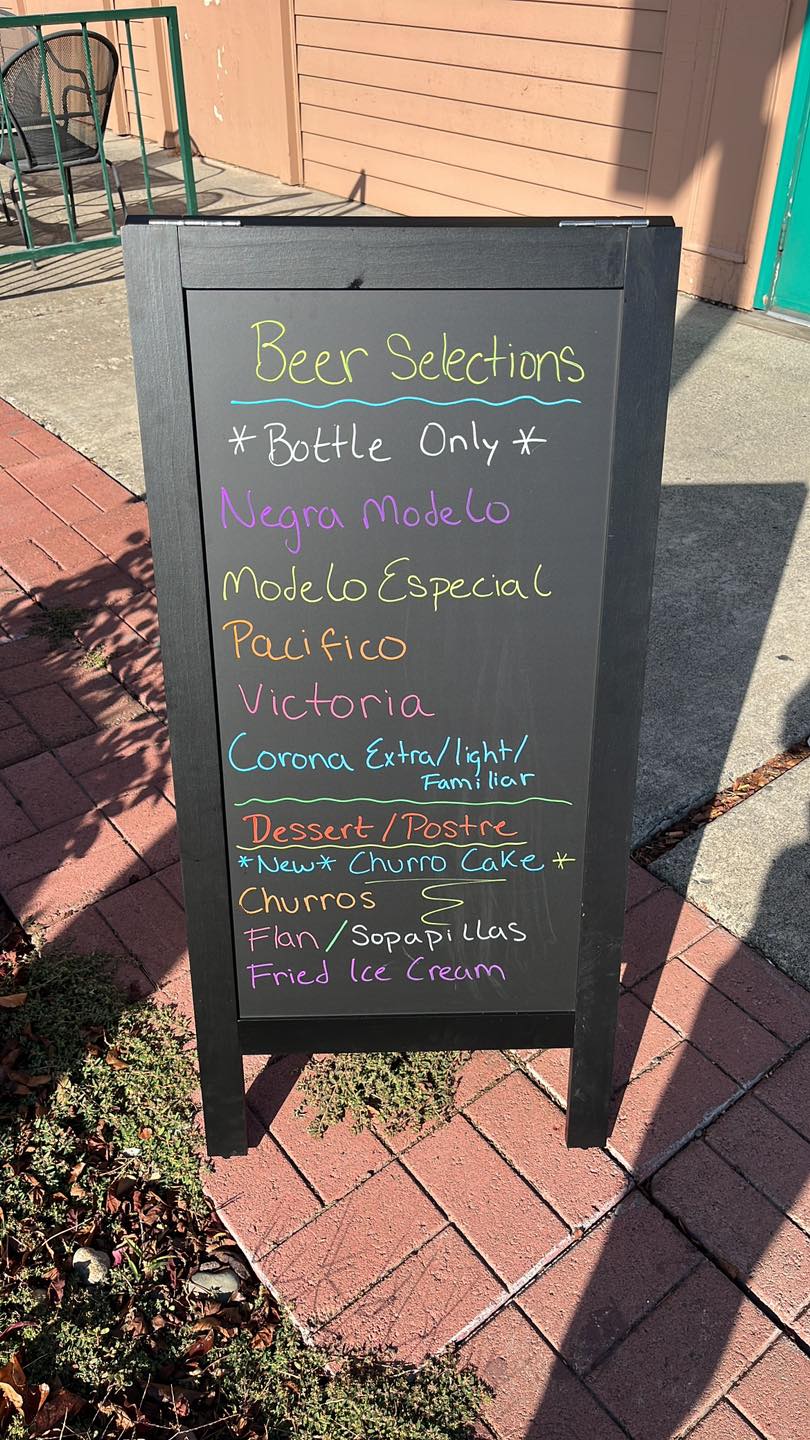 Beer Selections
*Bottle Only*
Negra Modelo
Modelo Especial
Pacifico
Victoria
Corona Extra/light/
Familiar
Dessert/Postre
*New* Churro Cake*
Churros
Flan/Sopapillas
Fried Ice Cream